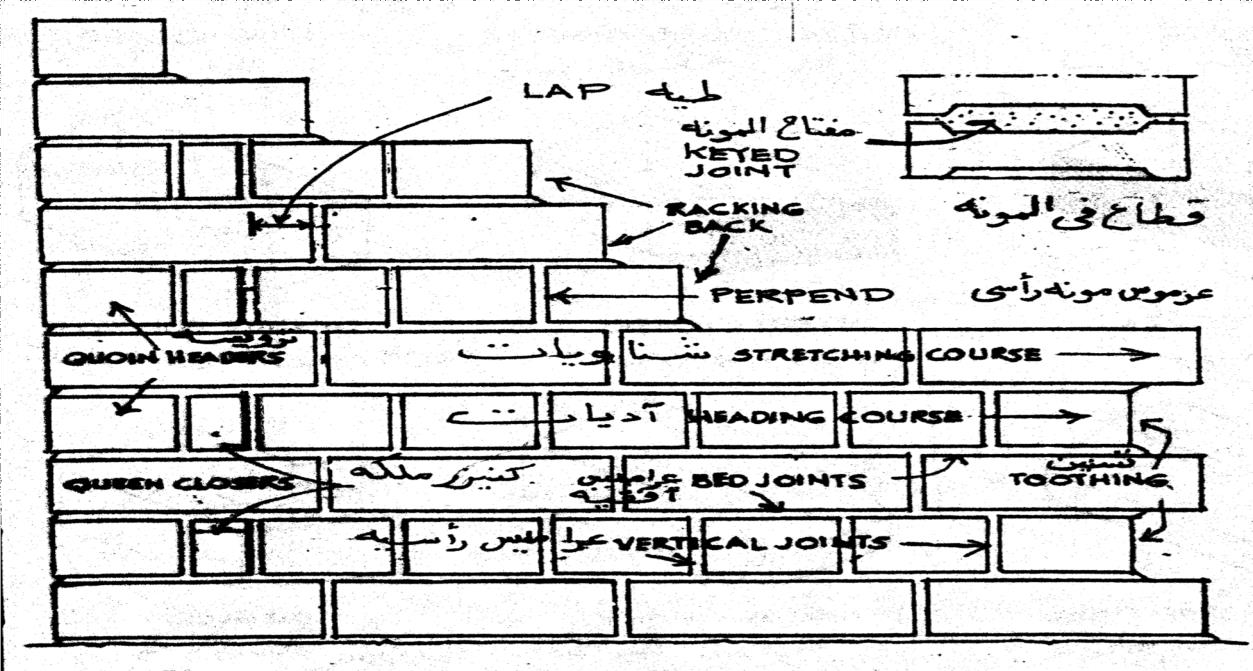 LAP طيه
مفتاح المونه
KEYED
JOINT
قطاع فى المونه
RACKING
BACK
PERPEND عرموس مونه رأسى
QUOIN HEADERS
شناويات STRETCHING COURSE
آديات HEADING COURSE
QUEEN CLOSERS
كنيزر ملكه
عراميس
آفقيه
BED JOINTS
تسنين
TOOTHING
عراميس رأسيه VERTICAL JOINTS